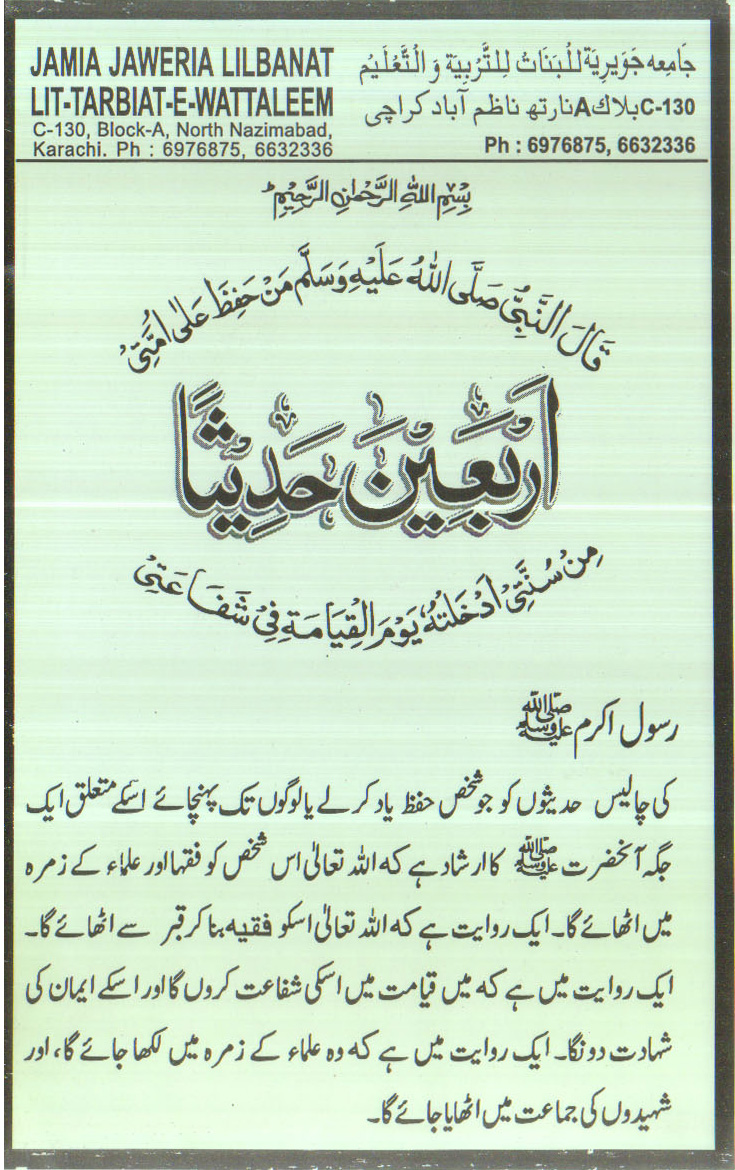 JAMIA JAWERIA LILBANAT
LIT-TARBIAT-E-WATTALEEM
C-130, Block-A, North Nazimabad,
Karachi. Ph : 6976875, 6632336
جَامِعه جَوَیرِیَة لِلْبَنَاتْ لِلتَّرْبِیَةِ وَ الْتَّعْلِیُم
C-130بلاکAنارتھ ناظم آباد کراچی
Ph : 6976875, 6632336
بِسْمِ اللهِ الرَّحْمٰنِ الرَّحِيْمِ
قَالَ النَّبِیُّ صَلَّی اللهُ عَلَیْهِ وَسَلَّمَ مَنْ حَفِظَ عَلٰی اُمَّتِیْ
اَرْبَعِیْنَ حَدِیْثًا
مِنْ سُنَّتِیْ اَدْخَلْتُهٗ یَوْمَ الْقِیَامَةِ فِیْ شَفَاعَتِیْ
رسول اکرم ﷺ
کی چالیس حدیثوں کو جو شخص حفظ یاد کرلے یا لوگوں تک پہنچائے اسکے متعلق ایک
جگہ آنحضرت ﷺ کا ارشاد ہے کہ اللہ تعالیٰ اس شخص کو فقہا اور علماء کے زمرہ
میں اٹھائے گا۔ ایک روایت ہے کہ اللہ تعالیٰ اسکو فقیہ بنا کر قبر سے اٹھائے گا۔
ایک روایت میں ہے کہ میں قیامت میں اسکی شفاعت کروں گا اور اسکے ایمان کی
شہادت دونگا۔ ایک روایت میں ہے کہ وہ علماء کے زمرہ میں لکھا جائے گا، اور
شہیدوں کی جماعت میں اٹھایا جائے گا۔